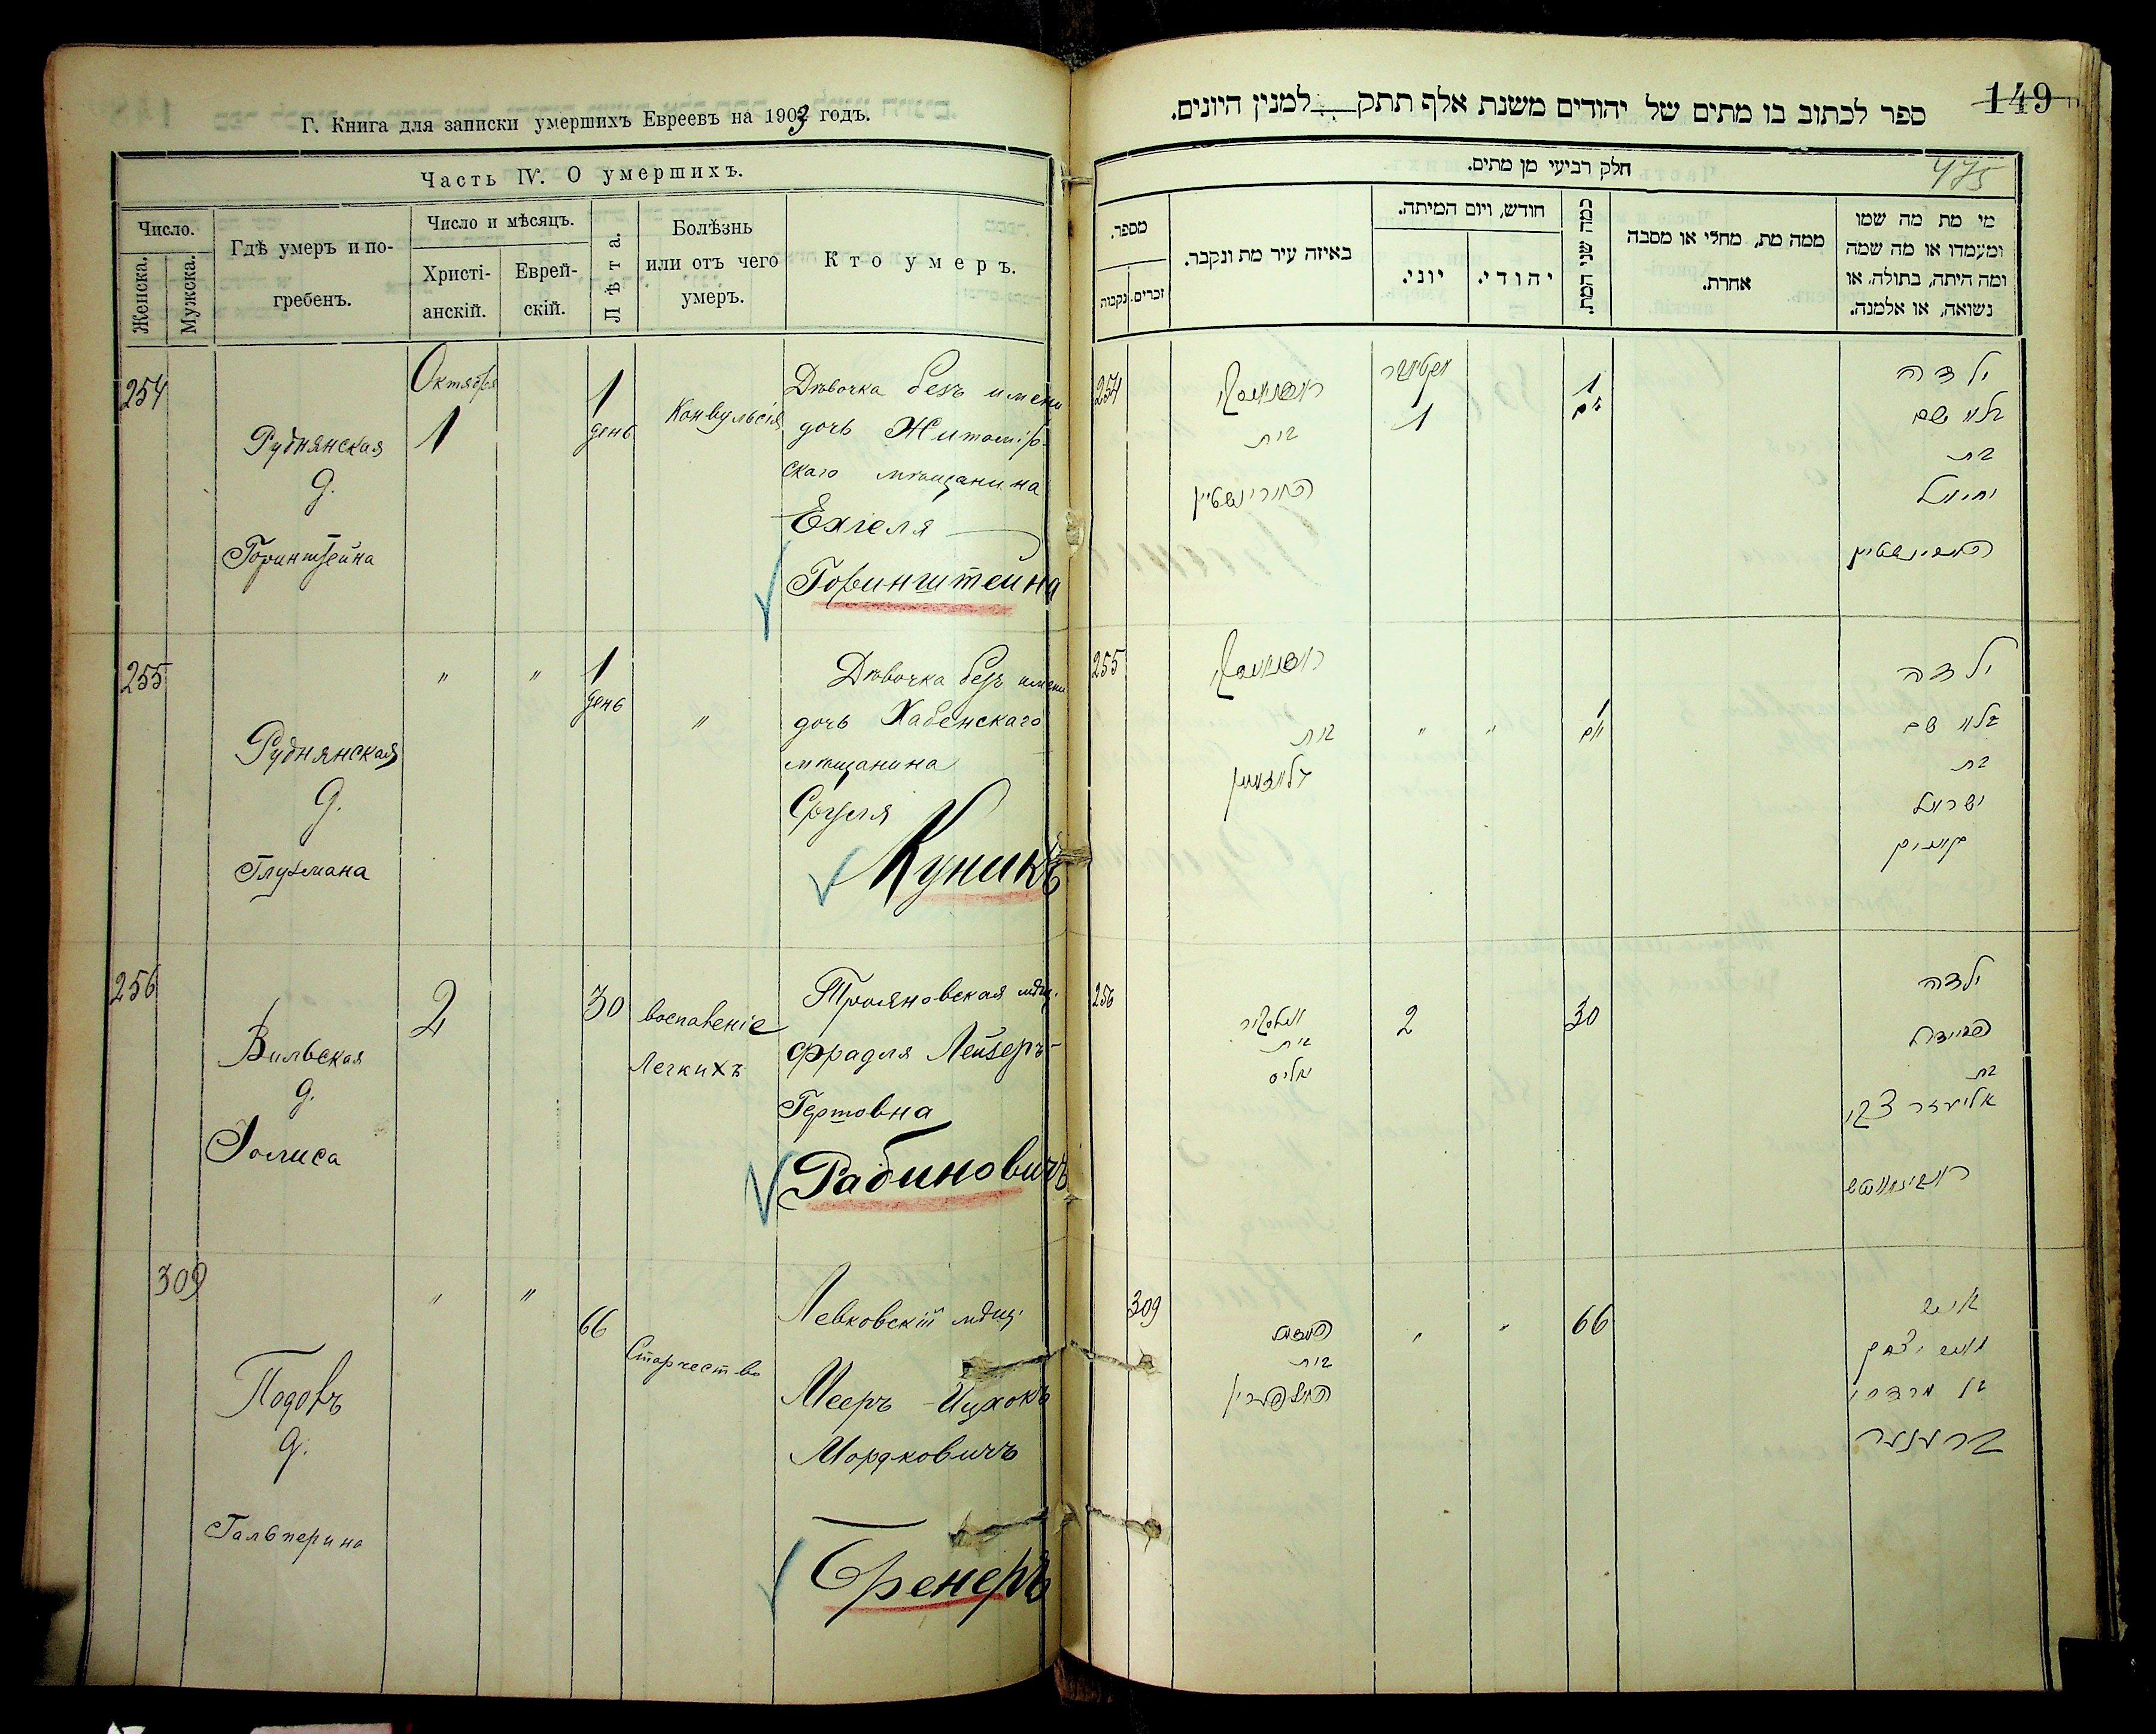 Г. Книга для записки умершихъ Евреевъ на 1903 годъ.
Часть IV. О умершихъ.
Число.
Женска.
Мужска.
Гдѣ умеръ и по-
гребенъ.
Число и мѣсяцъ.
Христі-
анскій.
Еврей-
скій.
Лѣта.
Болѣзнь
или отъ чего
умеръ.
Кто умеръ.
254
Руднянская
д.
Горинштейна
Октября
1
1
день
Конвульсія
Дѣвочка безъ имени
дочь Житомір-
скаго мѣщанина
Ехіеля
Горинштейна
255
Руднянская
д.
Глузмана
"
"
1
день
"
Дѣвочка безъ имени
дочь Хабенскаго
мѣщанина
Сруля
Куникъ
256
Вильская
д.
2
30
воспаленіе
Легкихъ
Трояновская мѣщ.
Фрадля Лейзеръ-
Гертовна
Рабиновичъ
309
д.
Гальперина
"
"
66
Старчество
Левковскій мѣщ.
Мееръ Ицхокъ
Мордковичъ
Бренеръ
149
ספר לכתוב בו מתים של יהודים משנת אלף תתק למנין היונים.
475
חלק רביעי מן מתים.
מספר.
נקבות
זכרים.
באיזה עיר מת ונקבר.
חודש, ויום המיתה.
יוני.
יהודי.
כמה שני המת.
ממה מת, מחלי או מסבה
אחרת.
מי מת מה שמו
ומעמדו או מה שמה
ומה היתה, בתולה, או
נשואה, או אלמנה.
254
בית
הארינשטיין
אקטיאבר
1
1
יום
ילדה
בלא שם
בת
יחיאל
הארינשטיין
255
בית
גלוזמאן
"
"
1
יום
ילדה
בלא שם
בת
ישראל
קוניק
256
בית
2
30
ילדה
פריידל
בת
אליעזר
ראבינאוויטש
309
בית
האלפערין
"
"
66
איש
יצחק
בן מרדכי
ברענער